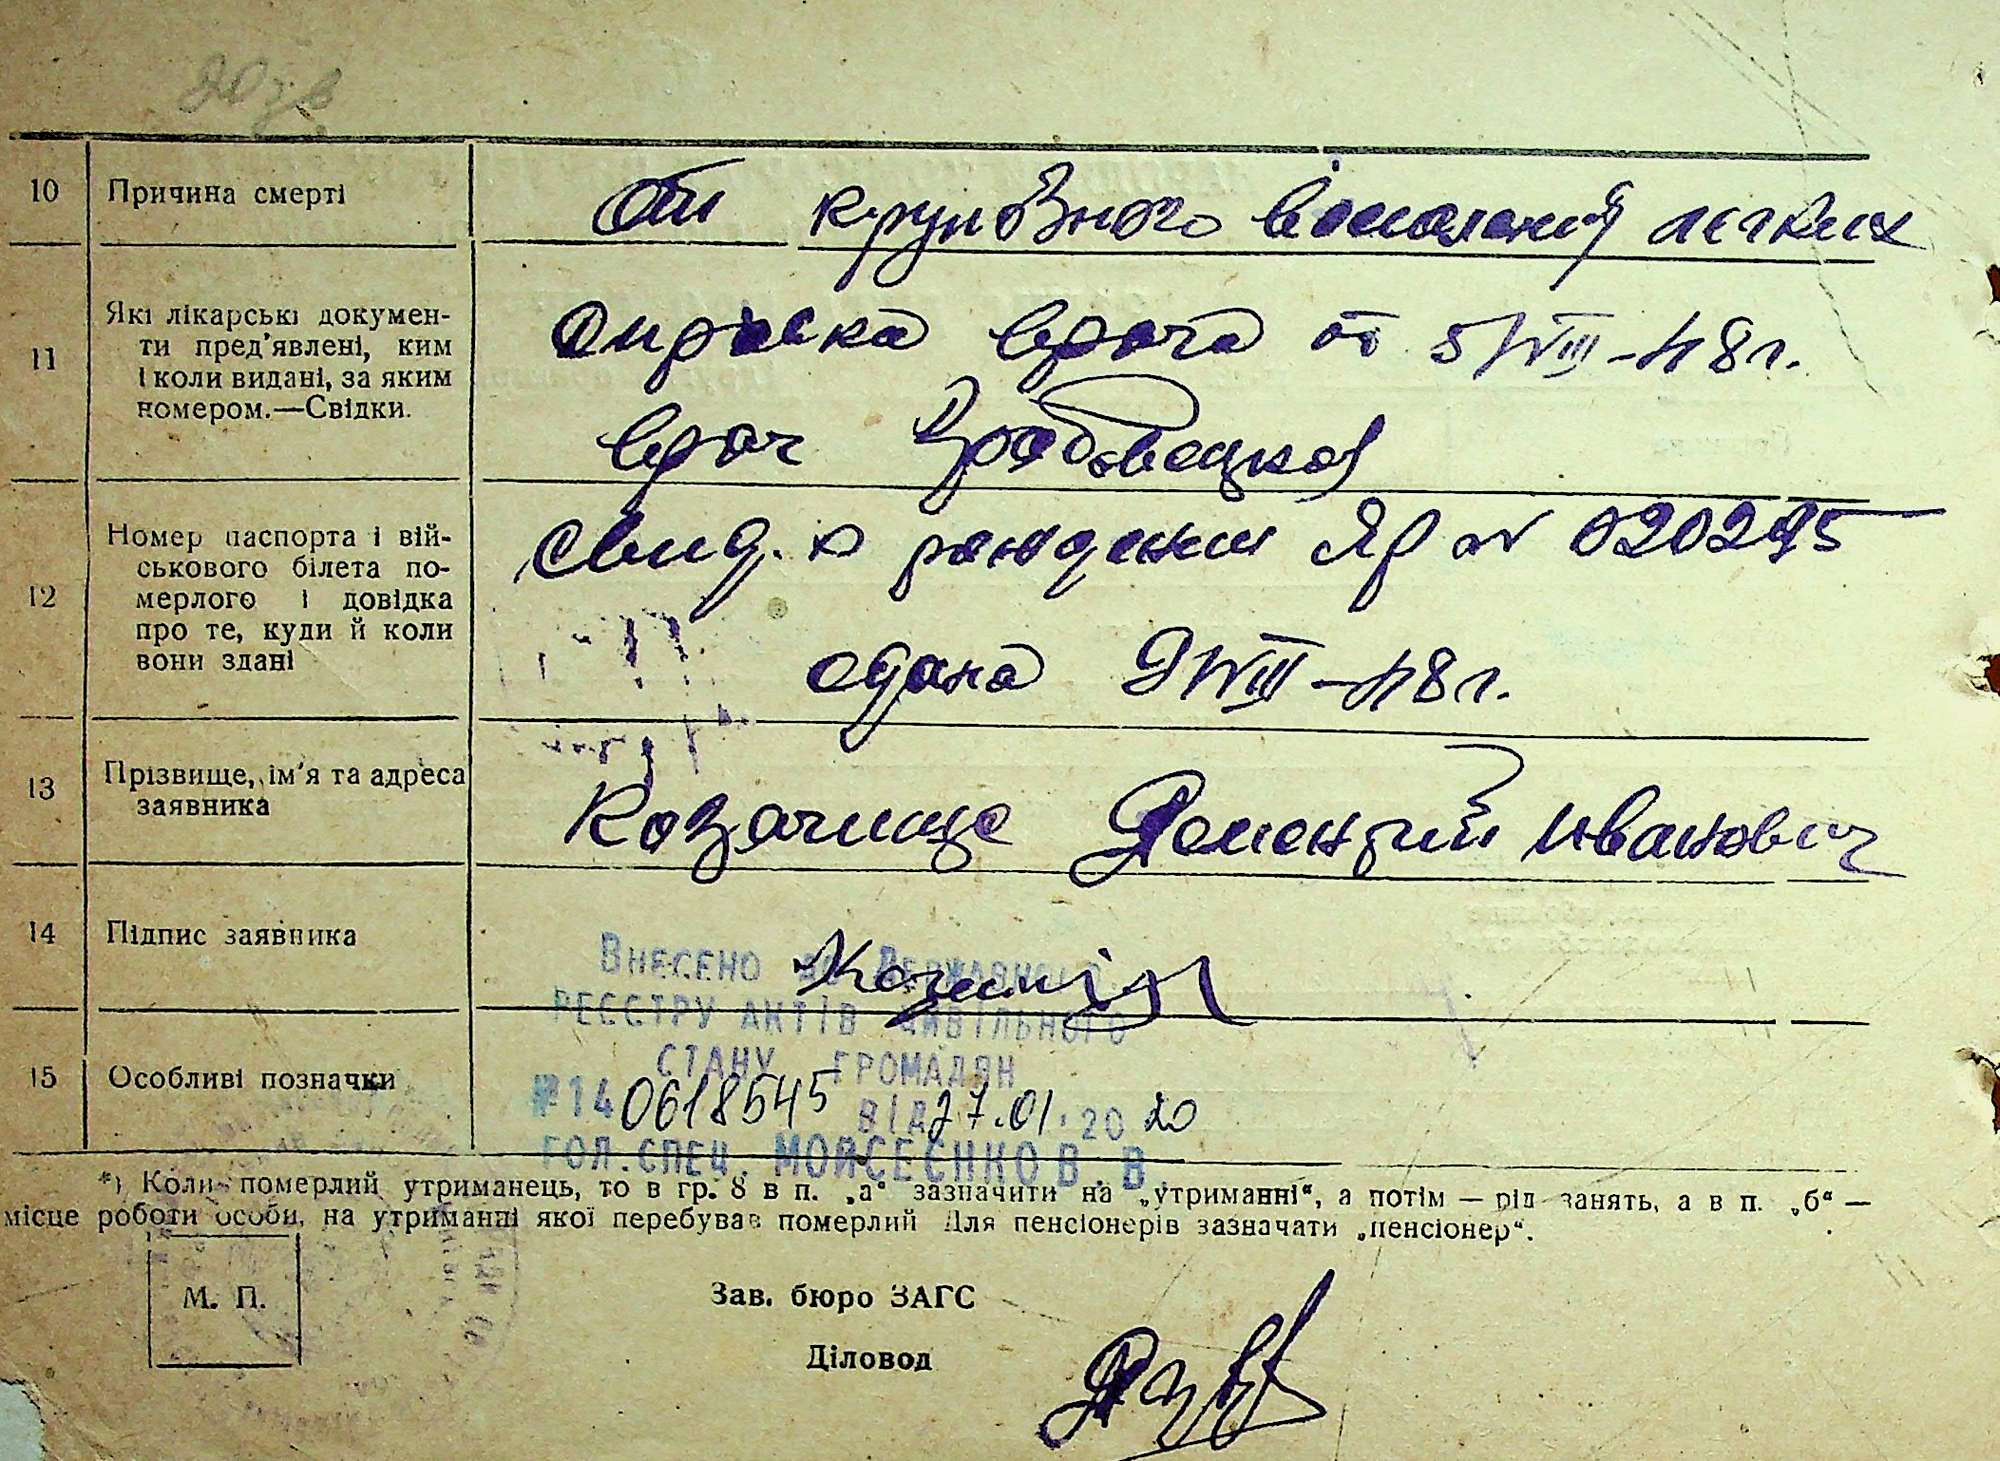 10 Причина смерті От крупозного воспаления легких
11 Які лікарські докумен-
ти пред'явлені, ким
і коли видані, за яким
номером.—Свідки.
Справка врача от 5/VIII-48г.
врач
12 Номер паспорта і вій-
ськового білета по-
мерлого і довідка
про те, куди й коли
вони здані
Свид. о рождении ЯР № 020295
сдана 9/VIII-48г.
13 Прізвище, ім'я та адреса
заявника
Козачище Дементий Иванович
14 Підпис заявника
Внесено до Державного
реєстру актів цивільного
стану громадян
15 Особливі позначки
№14 0618545 від 27.01.2020
гол.спец. Мойсеєнко В.В.
*) Коли померлий утриманець, то в гр. 8 в п. „а“ зазначити на „утриманні“, а потім — рід занять, а в п. „б“ —
місце роботи особи, на утриманні якої перебував померлий Для пенсіонерів зазначати „пенсіонер“.
М. П.
Зав. бюро ЗАГС
Діловод